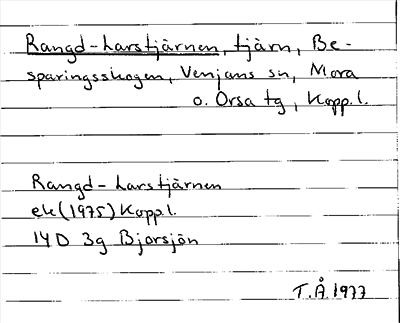 Rangd-Larstjärnen, tjärn, Be-
sparingsskogen, Venjans sn, Mora
o. Orsa tg, Kopp.l.
Rangd-Larstjärnen
ek (1975) Kopp.l.
14D 3g Bjorsjön
T.Å. 1977